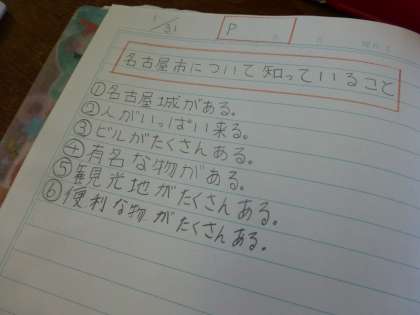 1/31
P
名古屋市について知っていること
①名古屋城がある。
②人がいっぱい来る。
③ビルがたくさんある。
④有名な物がある。
⑤観光地がたくさんある。
⑥便利な物がたくさんある。